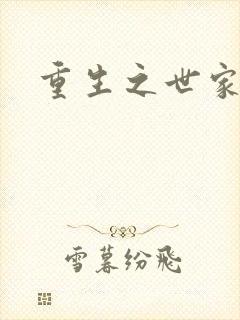 重生之世家
雪暮纷飞